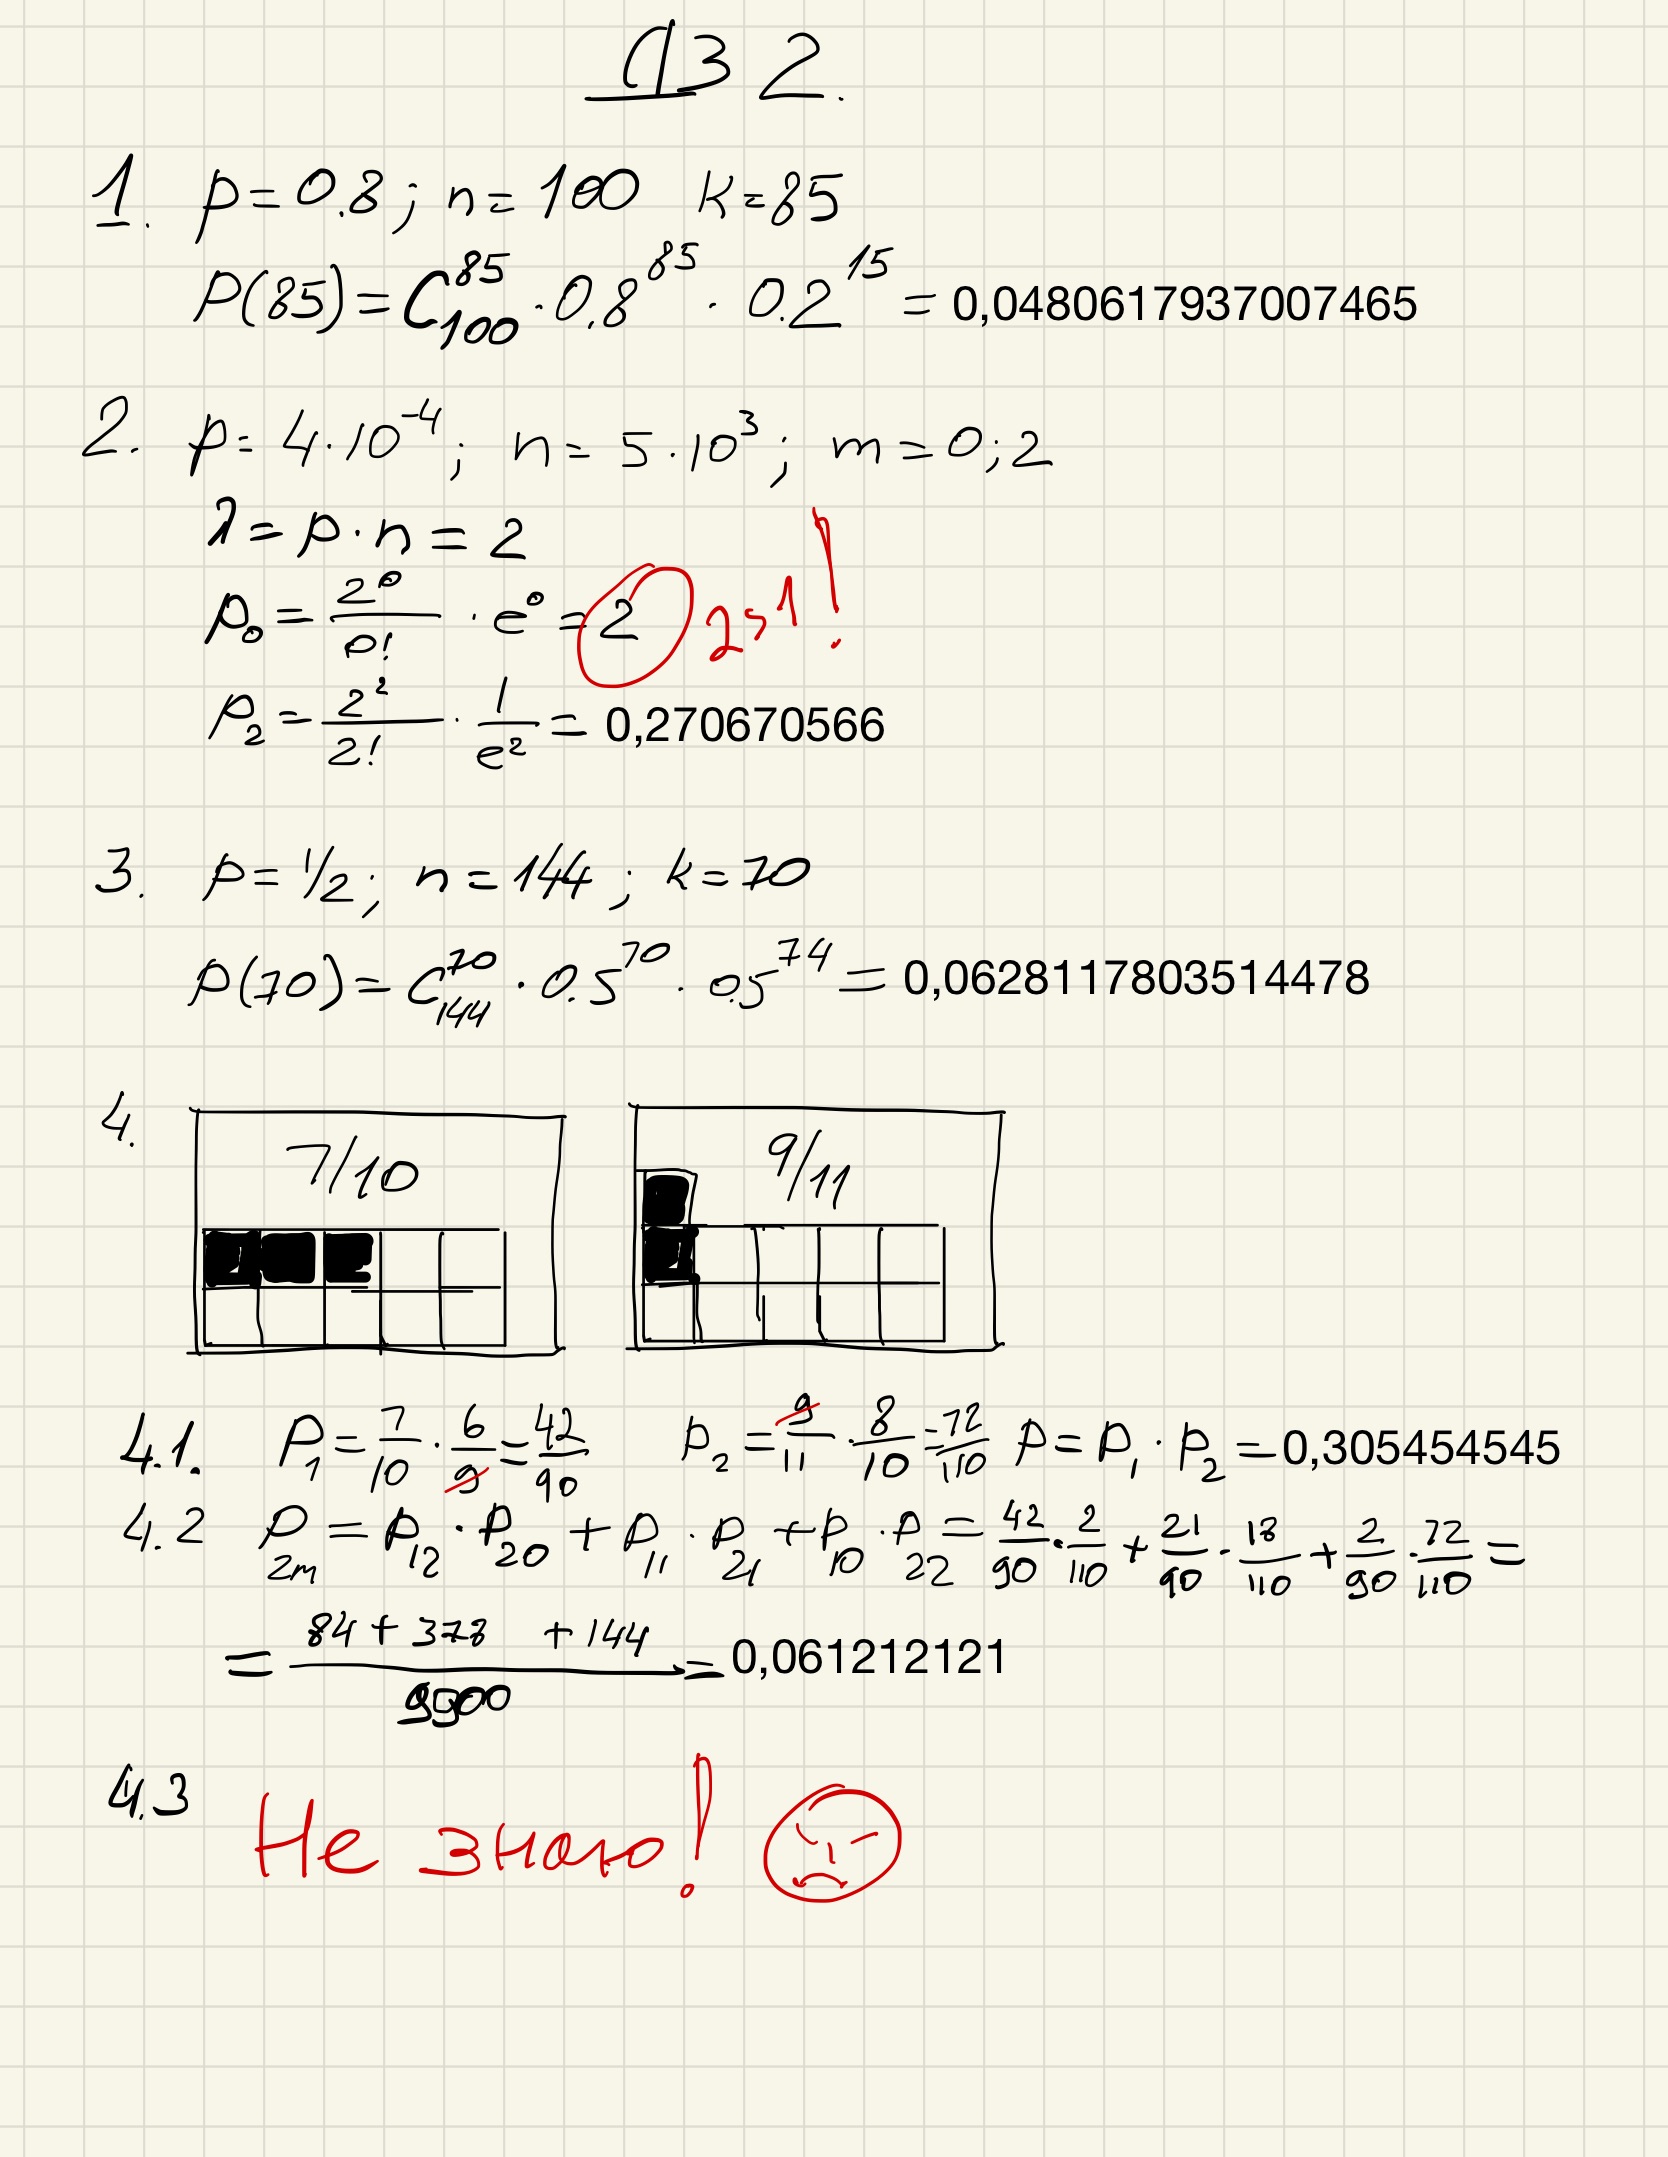 ДЗ 2.
1. p = 0.8; n = 100 k = 85
P(85) = C₁₀₀⁸⁵ · 0.8⁸⁵ · 0.2¹⁵ = 0,0480617937007465
2. p = 4·10⁻⁴; n = 5·10³; m = 0;2
λ = p·n = 2
p₀ = 2⁰/0! · e⁰ = 2 2>1!
p₂ = 2²/2! · 1/e² = 0,270670566
3. p = 1/2; n = 144; k = 70
P(70) = C₁₄₄⁷⁰ · 0.5⁷⁰ · 0.5⁷⁴ = 0,0628117803514478
4. 7/10 9/11
4.1. P₁ = 7/10 · 6/9 = 42/90 P₂ = 9/11 · 8/10 = 72/110 P = P₁ · P₂ = 0,305454545
4.2 P₂ₘ = P₁₂ · P₂₀ + P₁₁ · P₂₁ + P₁₀ · P₂₂ = 42/90 · 2/110 + 21/90 · 18/110 + 2/90 · 72/110 =
= (84 + 378 + 144)/9900 = 0,061212121
4.3 Не знаю!